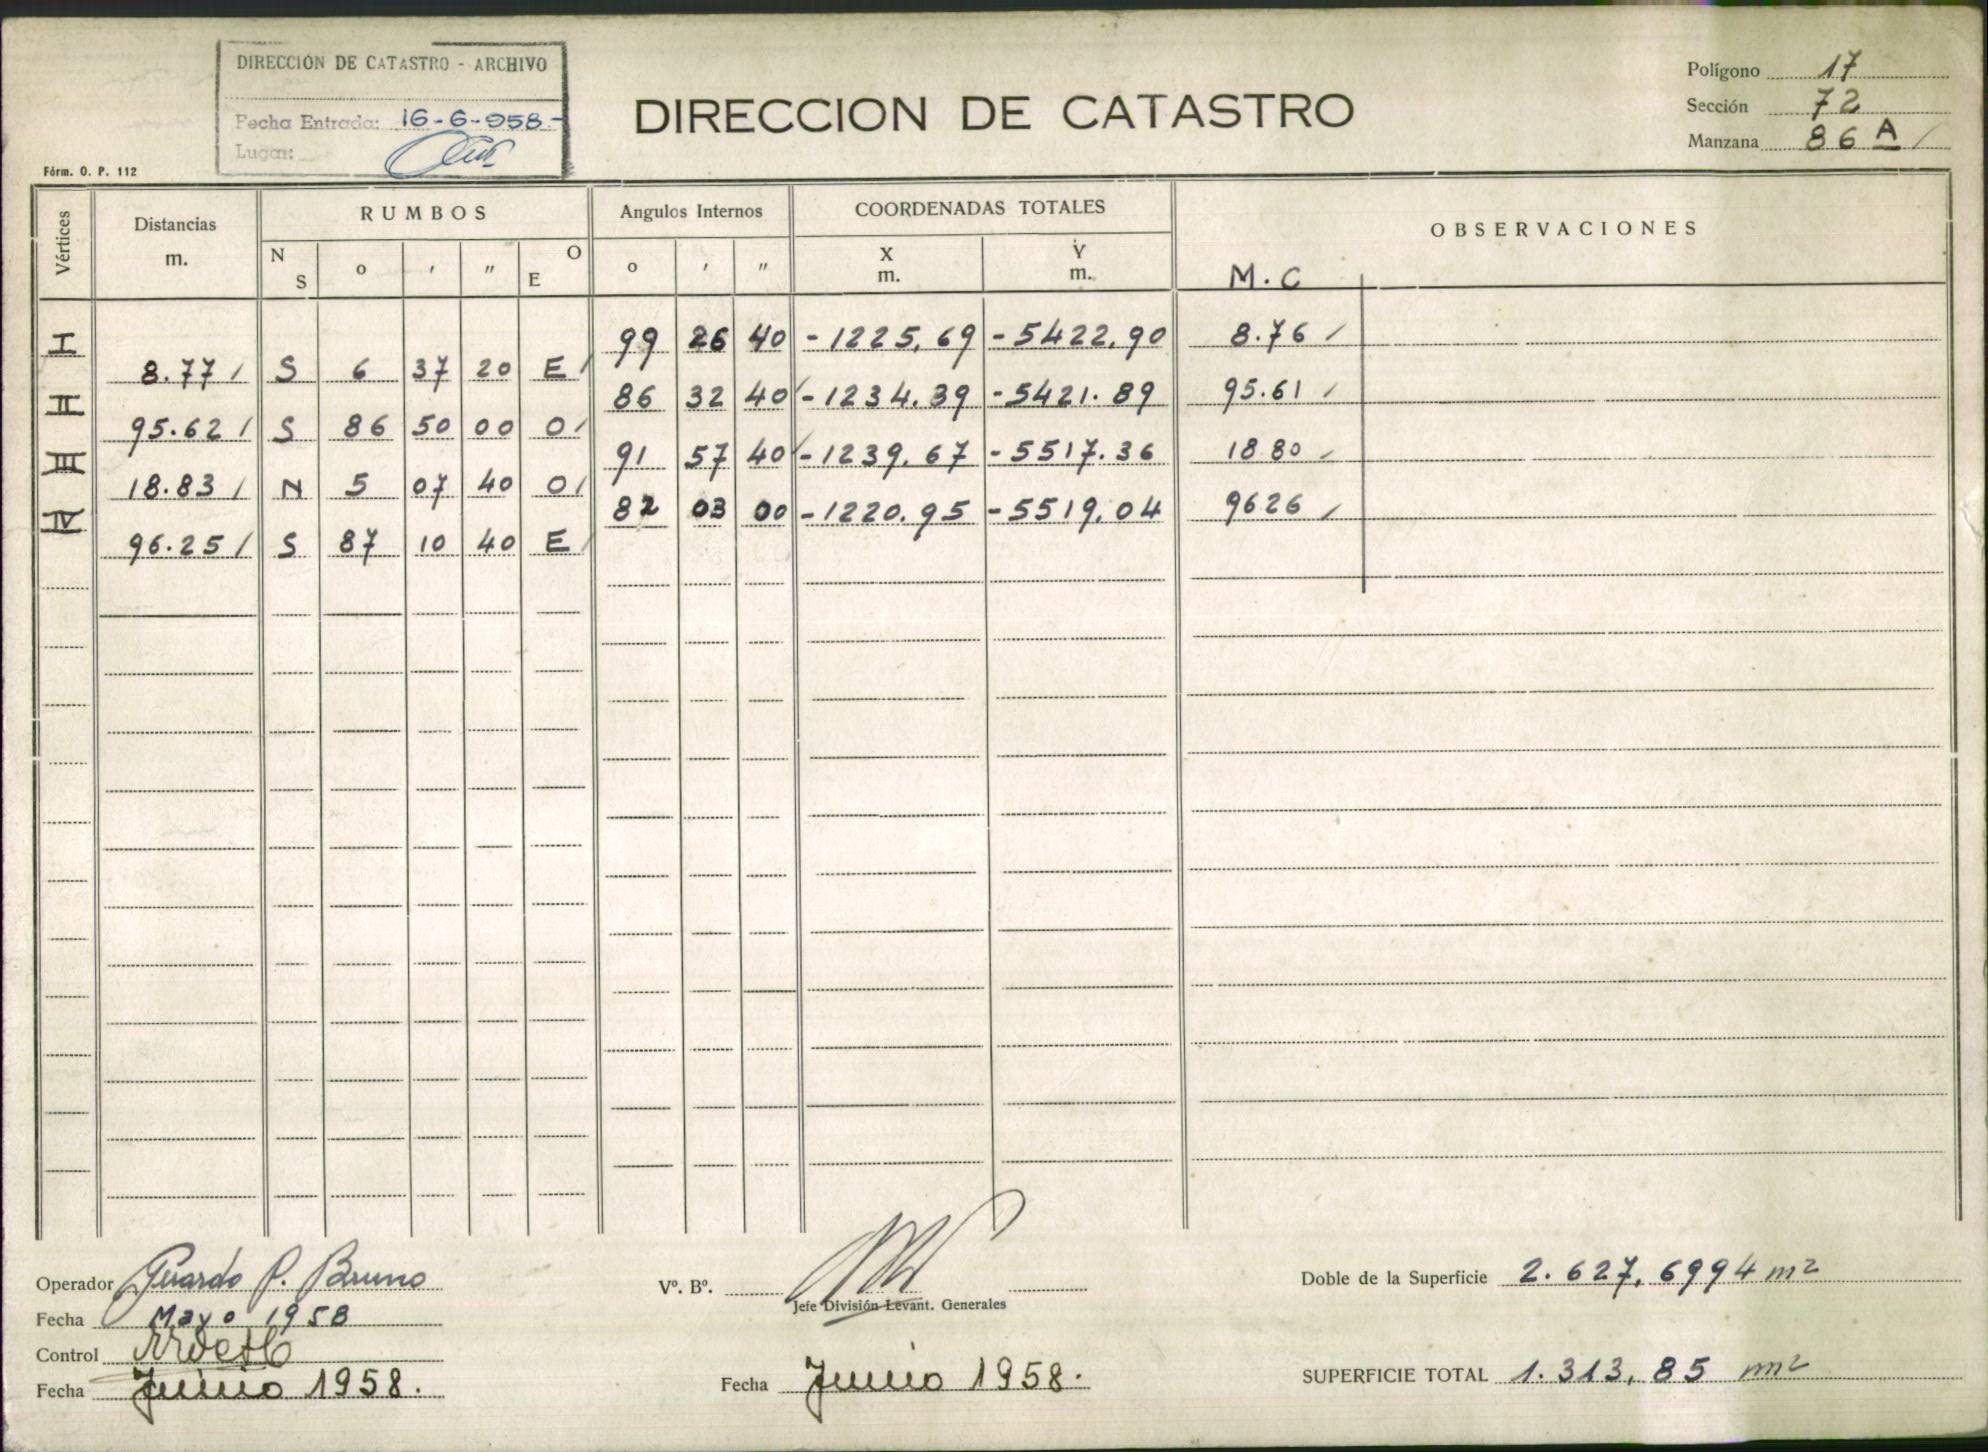 DIRECCIÓN DE CATASTRO - ARCHIVO
Fecha Entrada: 16-6-958-
Lugar:
DIRECCION DE CATASTRO
Polígono 17
Sección 72
Manzana 86 A /
Fórm. O. P. 112
Vértices Distancias m. RUMBOS Angulos Internos COORDENADAS TOTALES OBSERVACIONES
N S o ' " E O o ' " X m. Y m. M.C
I 99 26 40 -1225,69 -5422,90 8.76 /
8.77 / S 6 37 20 E /
II 86 32 40 -1234.39 -5421.89 95.61 /
95.62 / S 86 50 00 O /
III 91 57 40 -1239,67 -5517.36 18 80 /
18.83 / N 5 07 40 O /
IV 82 03 00 -1220.95 -5519,04 96 26 /
96.25 / S 87 10 40 E /
Operador Gerardo P. Bruno
Fecha Mayo 1958
Control
Fecha Junio 1958.
Vº. Bº.
Jefe División Levant. Generales
Fecha Junio 1958.
Doble de la Superficie 2.627,6994 m²
SUPERFICIE TOTAL 1.313,85 m²